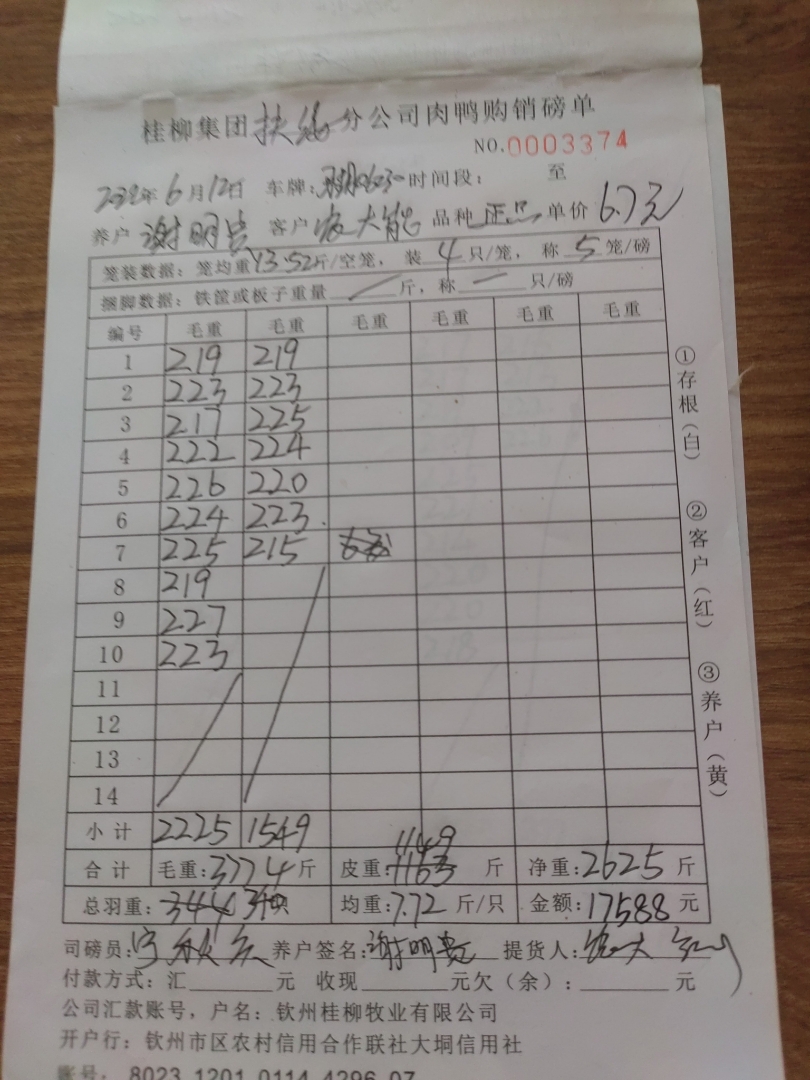 桂柳集团扶绥分公司肉鸭购销磅单
NO.0003374
2022年6月12日 车牌: 时间段: 至
养户 谢明贵 客户 农大能 品种 正品 单价 6.7元
笼装数据: 笼均重13.52斤/空笼, 装4只/笼, 称5笼/磅
捆脚数据: 铁筐或板子重量/斤, 称一只/磅
编号 毛重 毛重 毛重 毛重 毛重 毛重
1 219 219
2 223 223
3 217 225
4 222 224
5 226 220
6 224 223
7 225 215
8 219
9 227
10 223
11
12
13
14
小计 2225 1549
合计 毛重:3774斤 皮重:1149 1163 斤 净重:2625斤
总羽重:344 340只 均重:7.72斤/只 金额:17588元
司磅员: 养户签名:谢明贵 提货人:农大
付款方式: 汇 元 收现 元欠(余): 元
公司汇款账号, 户名: 钦州桂柳牧业有限公司
开户行: 钦州市区农村信用合作联社大垌信用社
账号: 8023 1201 0114 4296 07
①存根(白) ②客户(红) ③养户(黄)